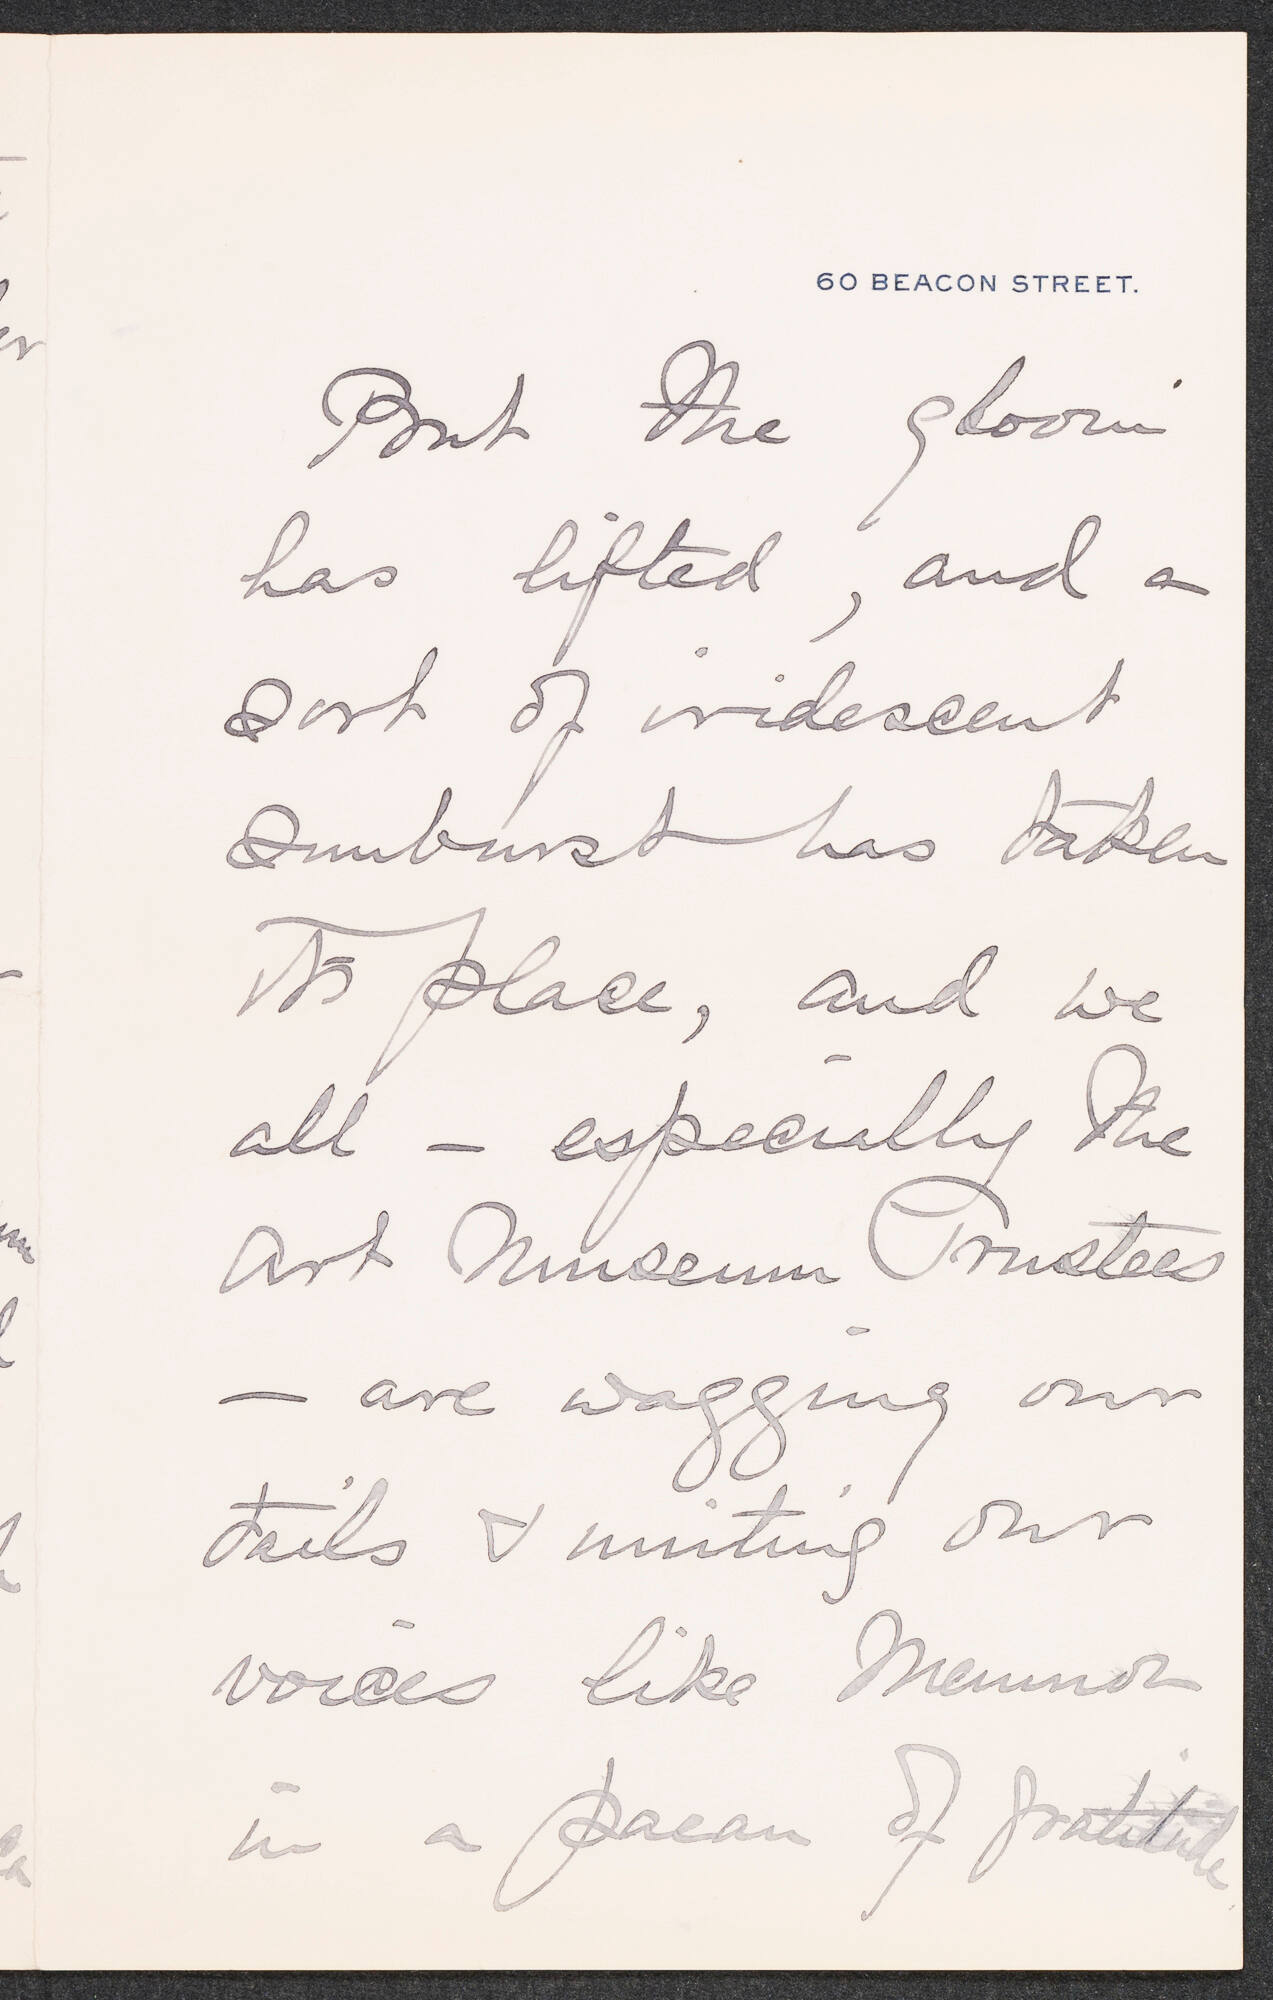 60 BEACON STREET.
But the gloom
has lifted, and a
sort of iridescent
sunburst has taken
its place, and we
all - especially the
Art Museum Trustees
- are wagging our
tails & uniting our
voices like Memnon
in a paean of gratitude